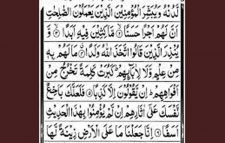 لَّدُنْهُ وَيُبَشِّرَ الْمُؤْمِنِيْنَ الَّذِيْنَ يَعْمَلُوْنَ الصّٰلِحٰتِ
اَنَّ لَهُمْ اَجْرًا حَسَنًا ۝ مَّاكِثِيْنَ فِيْهِ اَبَدًا ۝ وَّ
يُنْذِرَ الَّذِيْنَ قَالُوا اتَّخَذَ اللّٰهُ وَلَدًا ۝ مَا لَهُمْ بِهٖ
مِنْ عِلْمٍ وَّلَا لِاٰبَآئِهِمْ كَبُرَتْ كَلِمَةً تَخْرُجُ مِنْ
اَفْوَاهِهِمْ اِنْ يَّقُوْلُوْنَ اِلَّا كَذِبًا ۝ فَلَعَلَّكَ بَاخِعٌ
نَّفْسَكَ عَلٰٓى اٰثَارِهِمْ اِنْ لَّمْ يُؤْمِنُوْا بِهٰذَا الْحَدِيْثِ
اَسَفًا ۝ اِنَّا جَعَلْنَا مَا عَلَى الْاَرْضِ زِيْنَةً لَّهَا